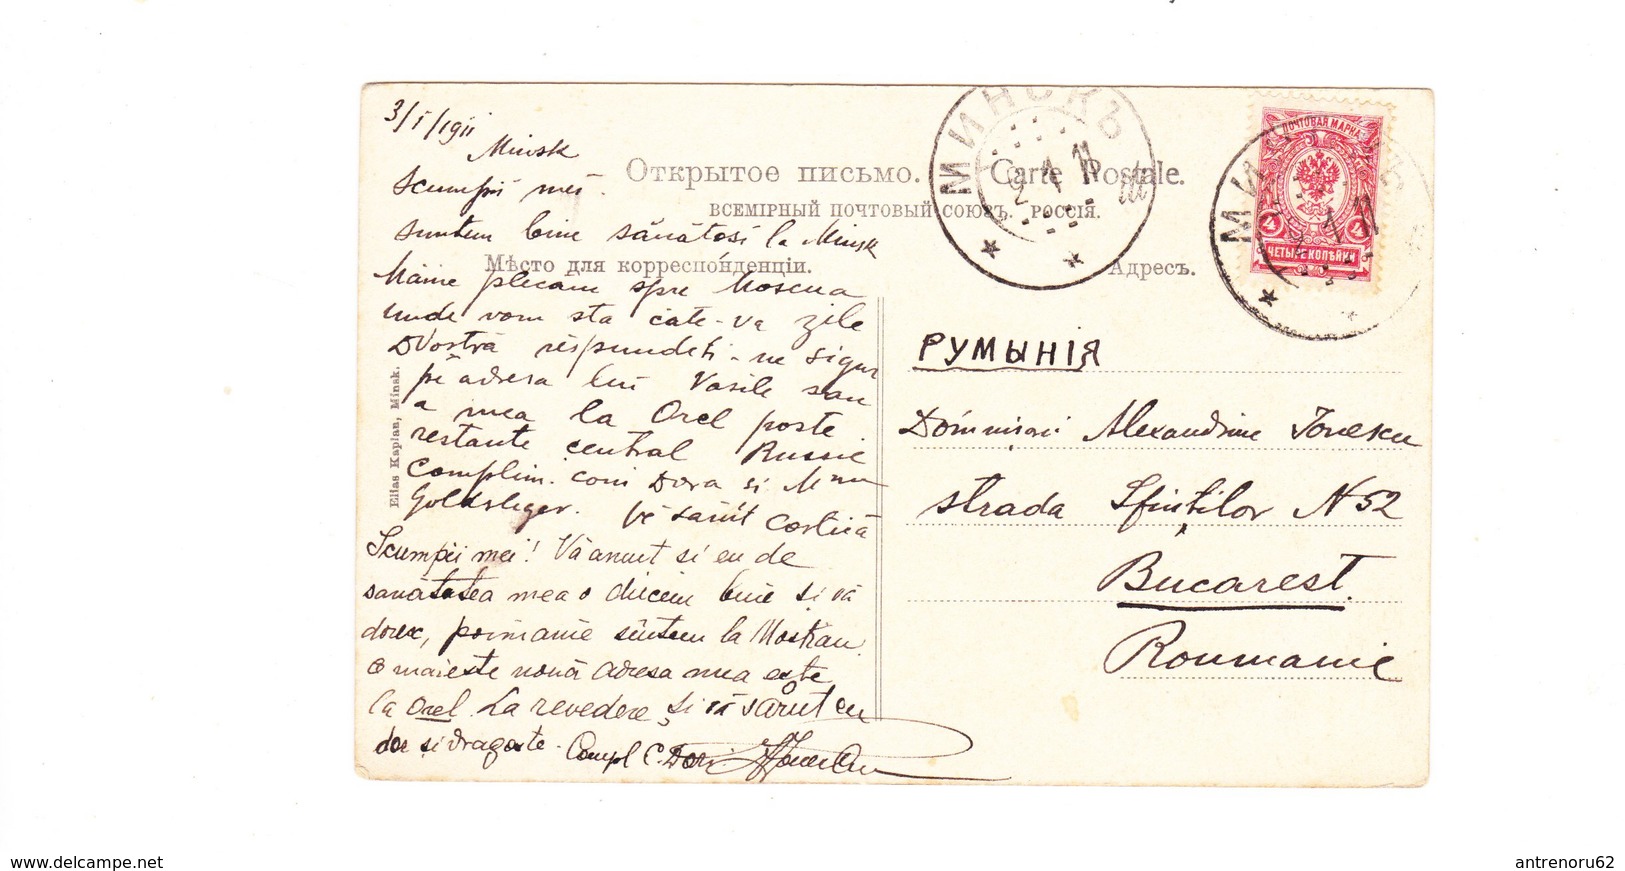 3/I/1911
Minsk
Scumpii mei.
Suntem bine sănătosi la Minsk
Mâine plecam spre Moscua
unde vom sta câte-va zile
DVostră respundeti-ne sigur
pe adresa lui Vasile sau
a mea la Orel poste
restante central Russie
Complim. coni Dora si Mme
Goldsleger. Vĕ sărut Costică
Scumpii mei! Vă anunt si eu de
sanătatea mea o ducem bine si vă
doresc, poimanie sîntem la
nouă adresa mea este
la Orel. La revedere, si vă sărut cu
dor si dragoste. Compl C.
Открытое письмо. Carte Postale.
ВСЕМІРНЫЙ ПОЧТОВЫЙ СОЮЗЪ. РОССІЯ.
Мѣсто для корреспонденціи.
Адресъ.
Elias Kaplan, Minsk.
МИНСКЪ
2 1 11
ПОЧТОВАЯ МАРКА
4 4
ЧЕТЫРЕ КОПѢЙКИ
РУМЫНІЯ
Alexandrine Ionescu
strada Sfintilor N 52
Bucarest.
Roumanie
www.delcampe.net
antrenoru62